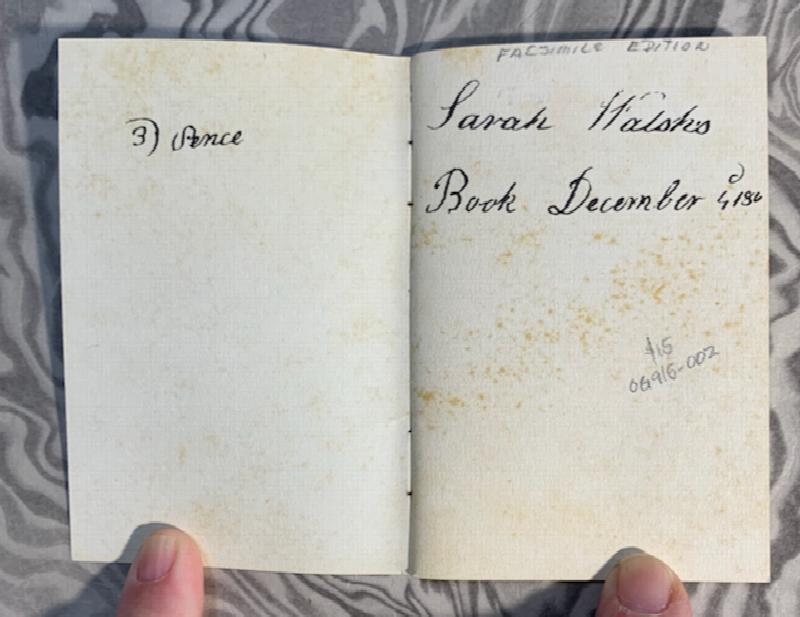 3) Pence
FACSIMILE EDITION
Sarah Walshs
Book December
$15
OG916-002